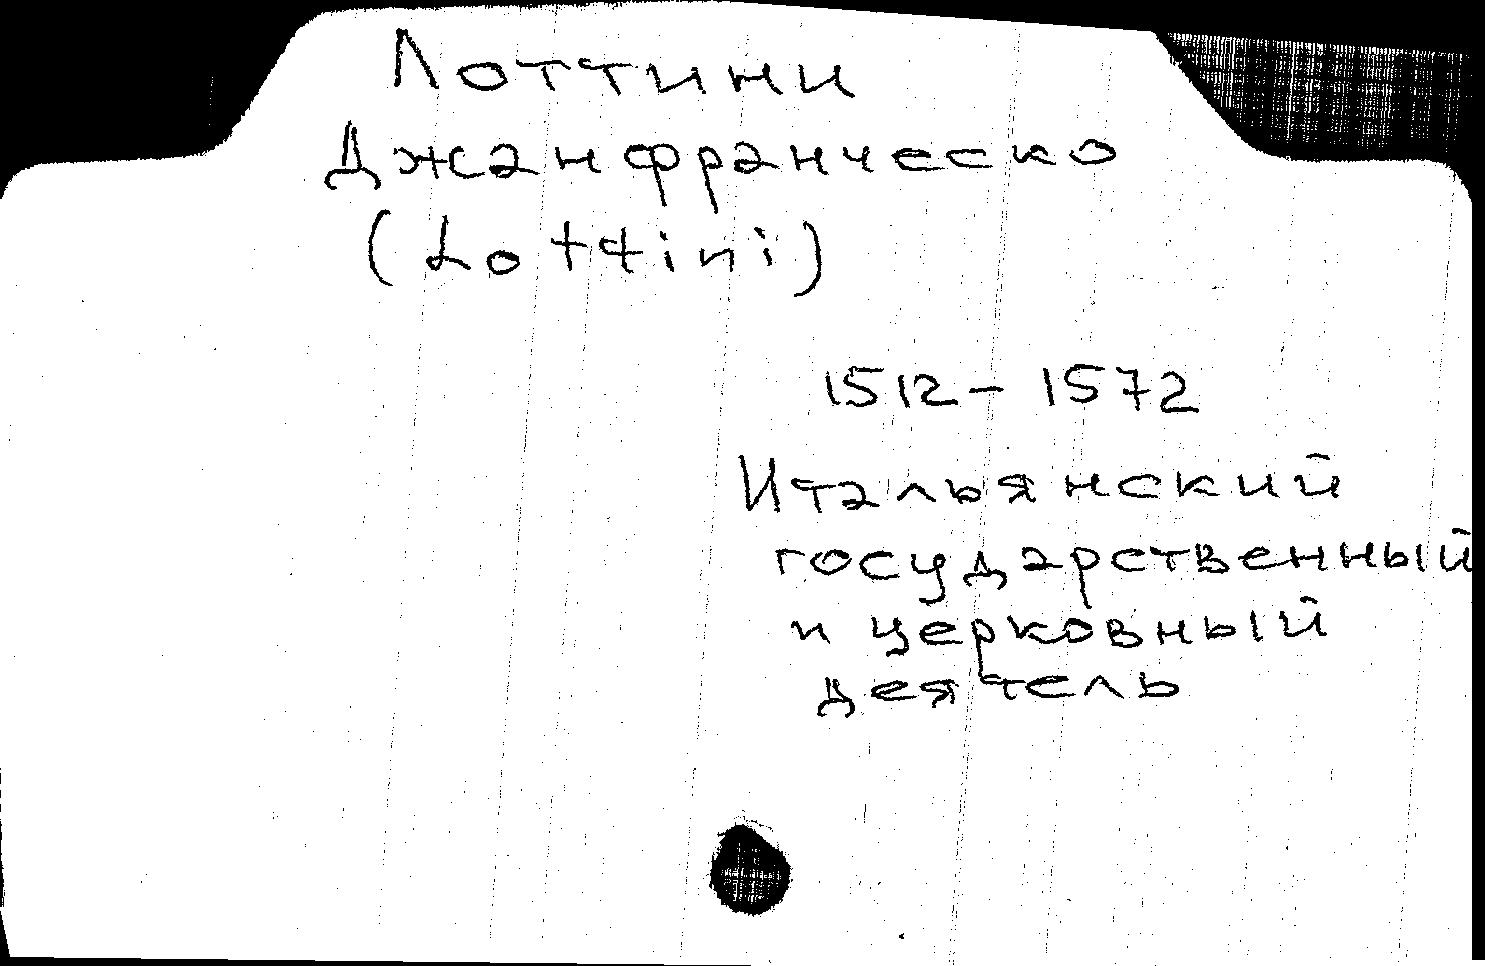 Лоттини
Джанфранческо
(Lottini)
1512 – 1572
Итальянский
государственный
и церковный
деятель